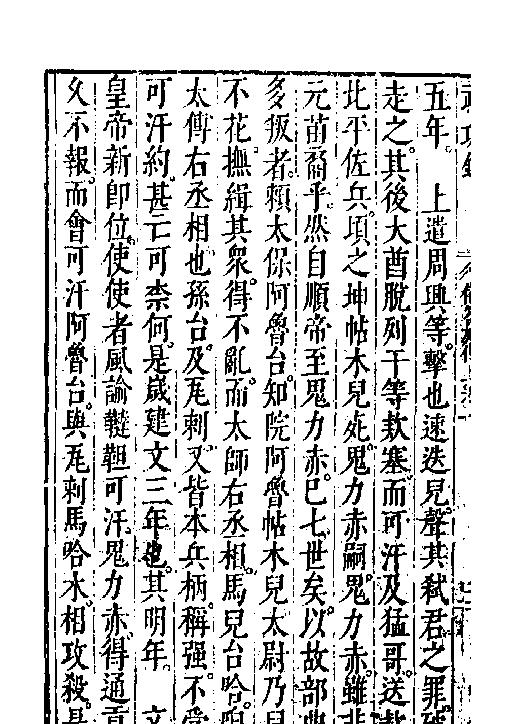 五年。上遣周興等。擊也速迭兒。聲其弒君之罪。
走之。其後大酋脫列干等欵塞。而可汗及猛哥。送
北平佐兵。頃之坤帖木兒死。鬼力赤嗣。鬼力赤。雖非
元苗裔乎。然自順帝至鬼力赤。巳七世矣。以故部
多叛者。賴太保阿魯台。知院阿魯帖木兒太尉乃兒
不花。撫緝其衆。得不亂。而太師右丞相。馬兒台哈
太傅右丞相也孫台。及瓦剌。又皆本兵柄。稱强。不受
可汗約。甚亡可柰何。是歲建文三年也。其明年。文
皇帝新卽位。使使者風諭韃靼可汗。鬼力赤。得通
久不報。而會可汗阿魯台。與瓦剌馬哈木。相攻殺。